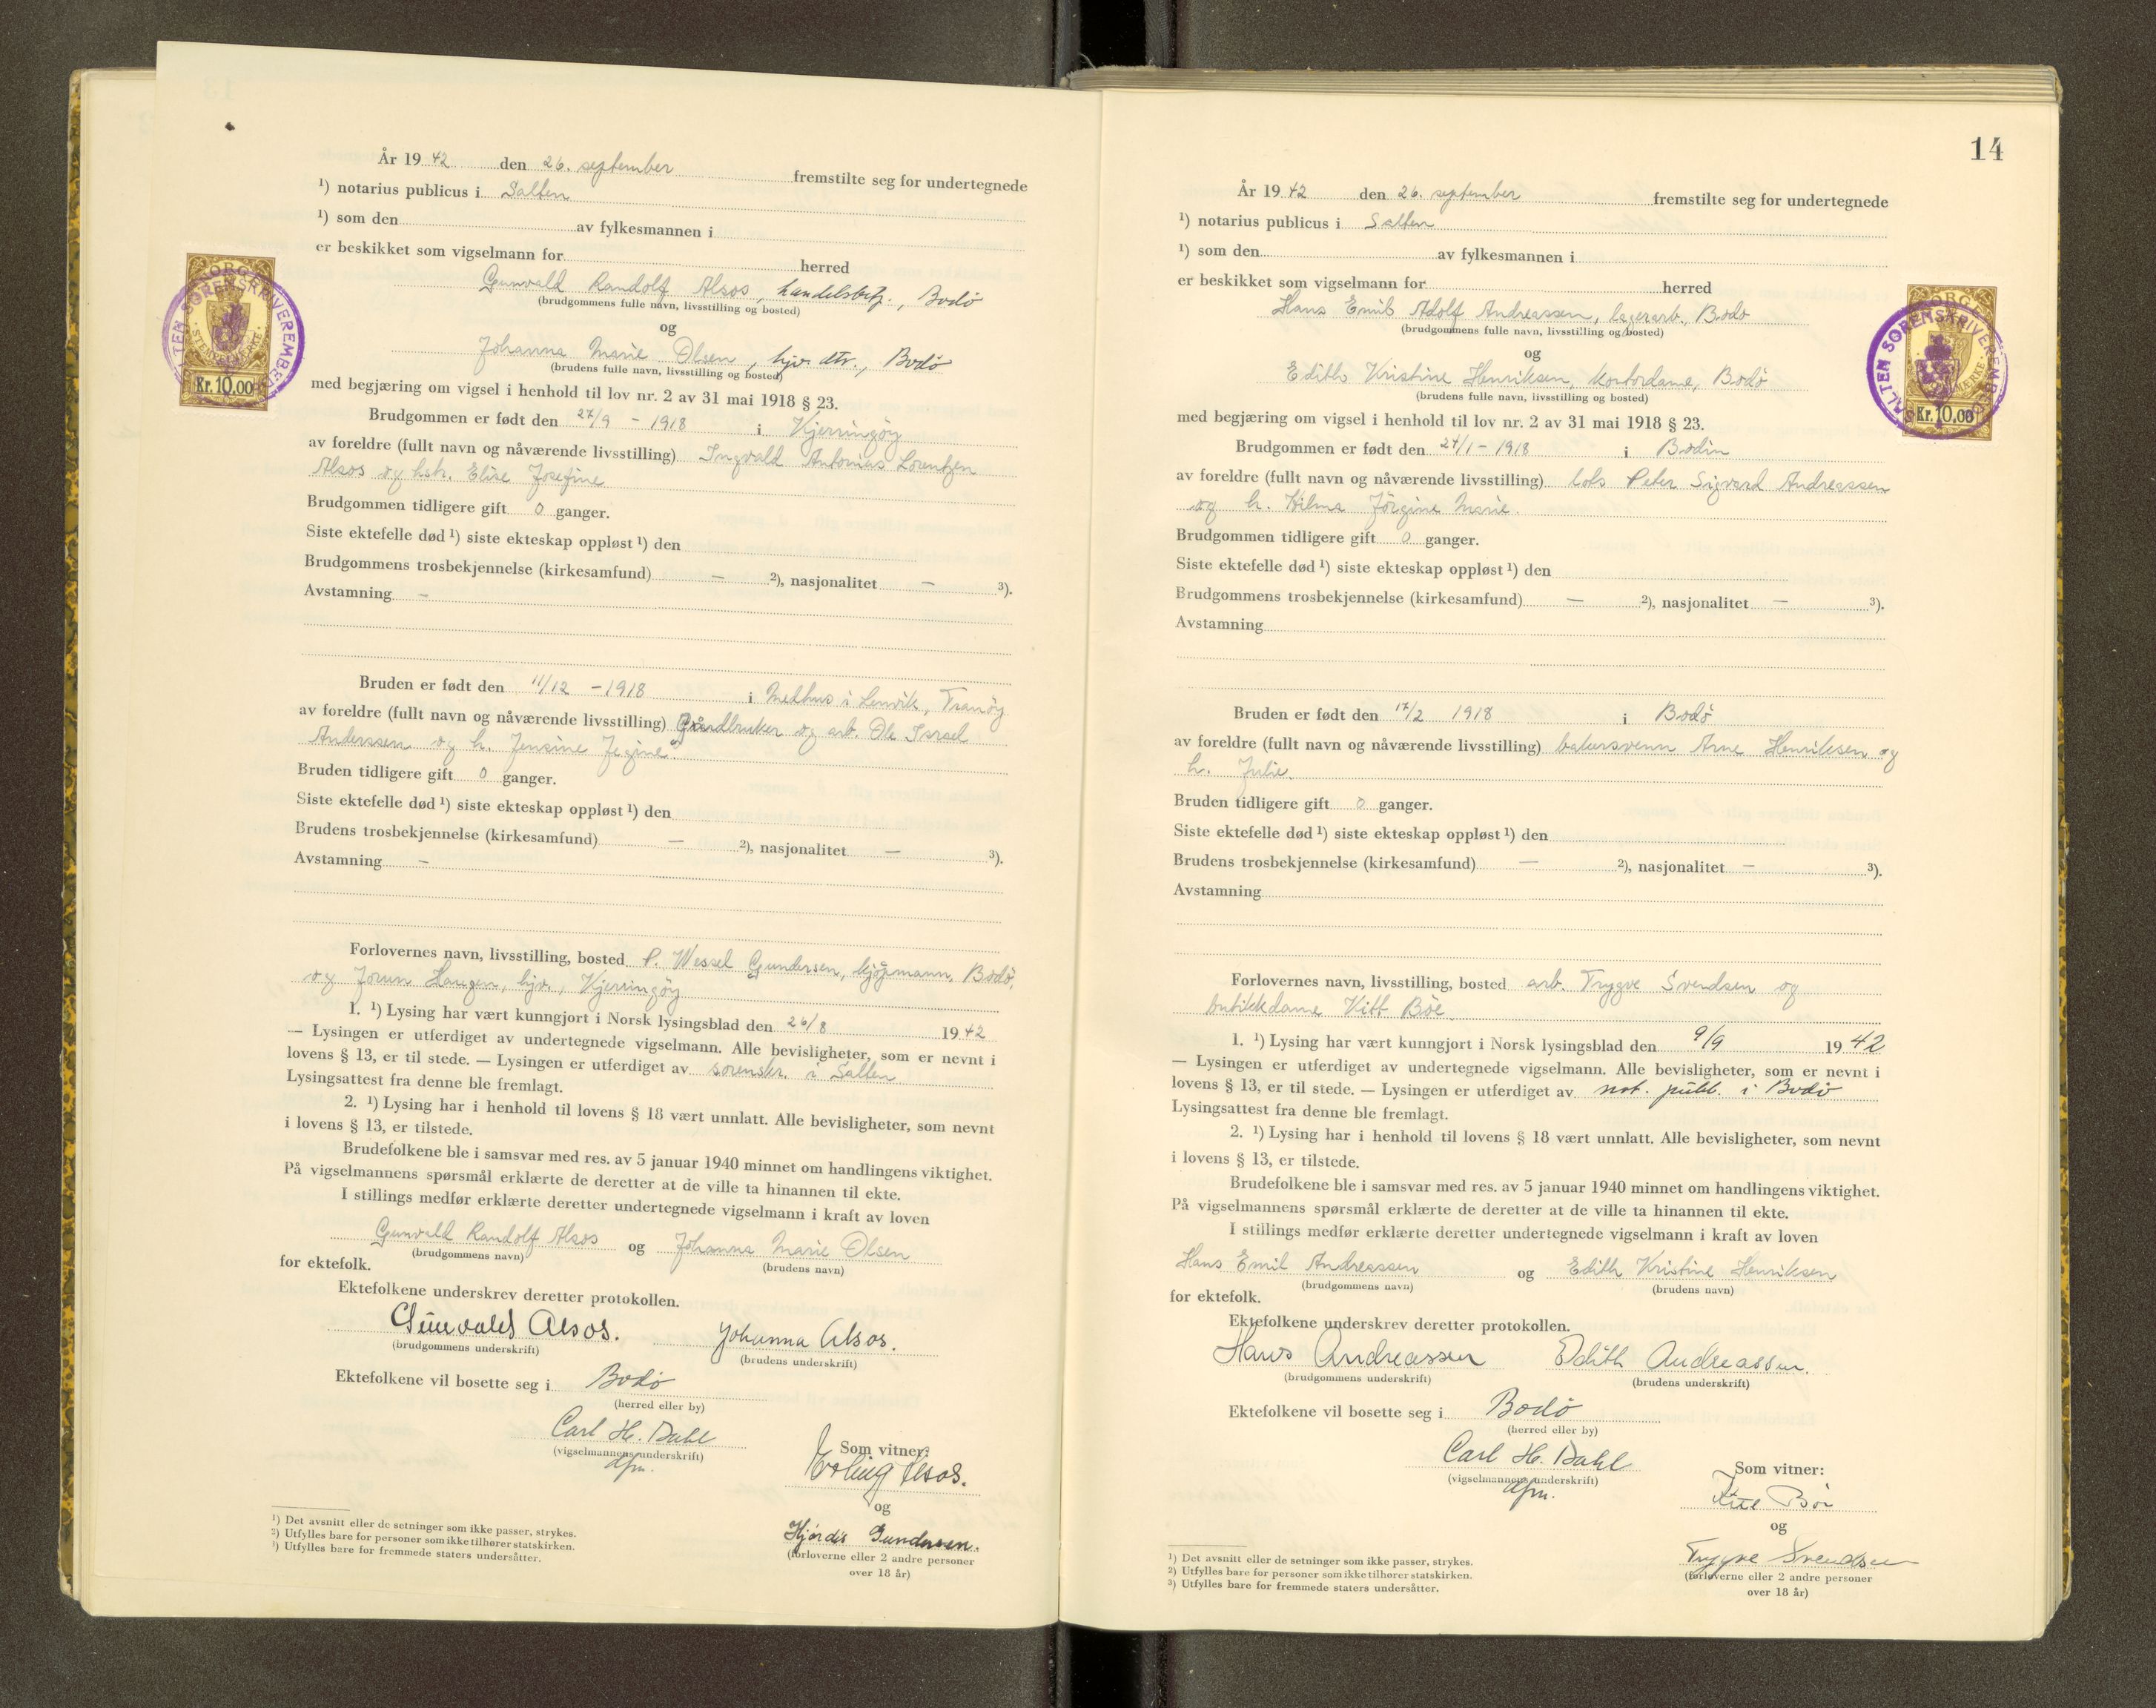 År 19 42 den 26. september fremstilte seg for undertegnede
¹) notarius publicus i Salten
¹) som den av fylkesmannen i
er beskikket som vigselmann for herred
Gunvald Randolf Alsos, handelsbetj., Bodø
(brudgommens fulle navn, livsstilling og bosted)
og
Johanna Marie Olsen, hjv. dtr., Bodø
(brudens fulle navn, livsstilling og bosted)
med begjæring om vigsel i henhold til lov nr. 2 av 31 mai 1918 § 23.
Brudgommen er født den 27/9 - 1918 i Kjerringøy
av foreldre (fullt navn og nåværende livsstilling) Ingvald Antonius Lorentzen
Alsos og hstr. Elise Josefine
Brudgommen tidligere gift 0 ganger.
Siste ektefelle død ¹) siste ekteskap oppløst ¹) den
Brudgommens trosbekjennelse (kirkesamfund) — ²), nasjonalitet — ³).
Avstamning —
Bruden er født den 11/12 - 1918 i Medhus i Lenvik, Tranøy
av foreldre (fullt navn og nåværende livsstilling) Gårdbruker og arb. Ole Israel
Anderssen og h. Jensine
Bruden tidligere gift 0 ganger.
Siste ektefelle død ¹) siste ekteskap oppløst ¹) den
Brudens trosbekjennelse (kirkesamfund) — ²), nasjonalitet — ³).
Avstamning —
Forlovernes navn, livsstilling, bosted P. Wessel Gundersen, kjøpmann, Bodø,
og Jorun Haugen, hjv., Kjerringøy
1. ¹) Lysing har vært kunngjort i Norsk lysingsblad den 26/8 19 42
— Lysingen er utferdiget av undertegnede vigselmann. Alle bevisligheter, som er nevnt i
lovens § 13, er til stede. — Lysingen er utferdiget av sorenskr. i Salten
Lysingsattest fra denne ble fremlagt.
2. ¹) Lysing har i henhold til lovens § 18 vært unnlatt. Alle bevisligheter, som nevnt
i lovens § 13, er tilstede.
Brudefolkene ble i samsvar med res. av 5 januar 1940 minnet om handlingens viktighet.
På vigselmannens spørsmål erklærte de deretter at de ville ta hinannen til ekte.
I stillings medfør erklærte deretter undertegnede vigselmann i kraft av loven
Gunvald Randolf Alsos og Johanna Marie Olsen
(brudgommens navn) (brudens navn)
for ektefolk.
Ektefolkene underskrev deretter protokollen.
Gunvald Alsos. Johanna Alsos.
(brudgommens underskrift) (brudens underskrift)
Ektefolkene vil bosette seg i Bodø
(herred eller by)
Carl H. Dahl
(vigselmannens underskrift)
dfm.
Som vitner:
Erling Alsos.
og
Hjørdis Gundersen.
(forloverne eller 2 andre personer
over 18 år)
¹) Det avsnitt eller de setninger som ikke passer, strykes.
²) Utfylles bare for personer som ikke tilhører statskirken.
³) Utfylles bare for fremmede staters undersåtter.
NORGE
STEMPELMERKE
Kr. 10.00
SALTEN SORENSKRIVEREMBED
14
År 19 42 den 26. september fremstilte seg for undertegnede
¹) notarius publicus i Salten
¹) som den av fylkesmannen i
er beskikket som vigselmann for herred
Hans Emil Adolf Andreassen, lagerarb., Bodø
(brudgommens fulle navn, livsstilling og bosted)
og
Edith Kristine Henriksen, kontordame, Bodø
(brudens fulle navn, livsstilling og bosted)
med begjæring om vigsel i henhold til lov nr. 2 av 31 mai 1918 § 23.
Brudgommen er født den 24/1 - 1918 i Bodin
av foreldre (fullt navn og nåværende livsstilling) lods Peter Sigvard Andreassen
og h. Hilma Jørgine Marie.
Brudgommen tidligere gift 0 ganger.
Siste ektefelle død ¹) siste ekteskap oppløst ¹) den
Brudgommens trosbekjennelse (kirkesamfund) — ²), nasjonalitet — ³).
Avstamning
Bruden er født den 17/2 1918 i Bodø
av foreldre (fullt navn og nåværende livsstilling) bakersvenn Arne Henriksen og
h. Julie.
Bruden tidligere gift 0 ganger.
Siste ektefelle død ¹) siste ekteskap oppløst ¹) den
Brudens trosbekjennelse (kirkesamfund) — ²), nasjonalitet — ³).
Avstamning
Forlovernes navn, livsstilling, bosted arb. Trygve Svendsen og
butikkdame Kitt Bøe
1. ¹) Lysing har vært kunngjort i Norsk lysingsblad den 9/9 19 42
— Lysingen er utferdiget av undertegnede vigselmann. Alle bevisligheter, som er nevnt i
lovens § 13, er til stede. — Lysingen er utferdiget av not. publ. i Bodø
Lysingsattest fra denne ble fremlagt.
2. ¹) Lysing har i henhold til lovens § 18 vært unnlatt. Alle bevisligheter, som nevnt
i lovens § 13, er tilstede.
Brudefolkene ble i samsvar med res. av 5 januar 1940 minnet om handlingens viktighet.
På vigselmannens spørsmål erklærte de deretter at de ville ta hinannen til ekte.
I stillings medfør erklærte deretter undertegnede vigselmann i kraft av loven
Hans Emil Andreassen og Edith Kristine Henriksen
(brudgommens navn) (brudens navn)
for ektefolk.
Ektefolkene underskrev deretter protokollen.
Hans Andreassen Edith Andreassen.
(brudgommens underskrift) (brudens underskrift)
Ektefolkene vil bosette seg i Bodø
(herred eller by)
Carl H. Dahl
(vigselmannens underskrift)
dfm.
Som vitner:
Bøe
og
Trygve Svendsen
(forloverne eller 2 andre personer
over 18 år)
¹) Det avsnitt eller de setninger som ikke passer, strykes.
²) Utfylles bare for personer som ikke tilhører statskirken.
³) Utfylles bare for fremmede staters undersåtter.
NORGE
Kr. 10.00
SALTEN SORENSKRIVEREMBED